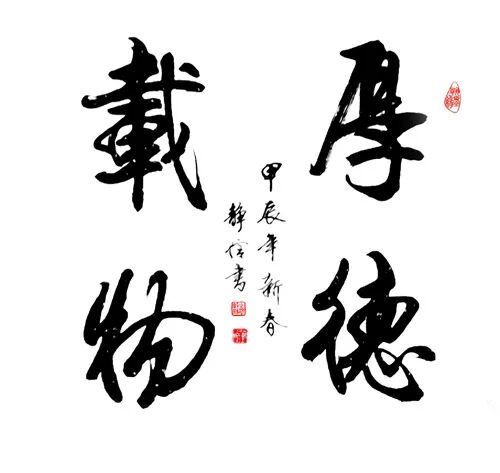 厚德
載物
甲辰年新春
靜信書